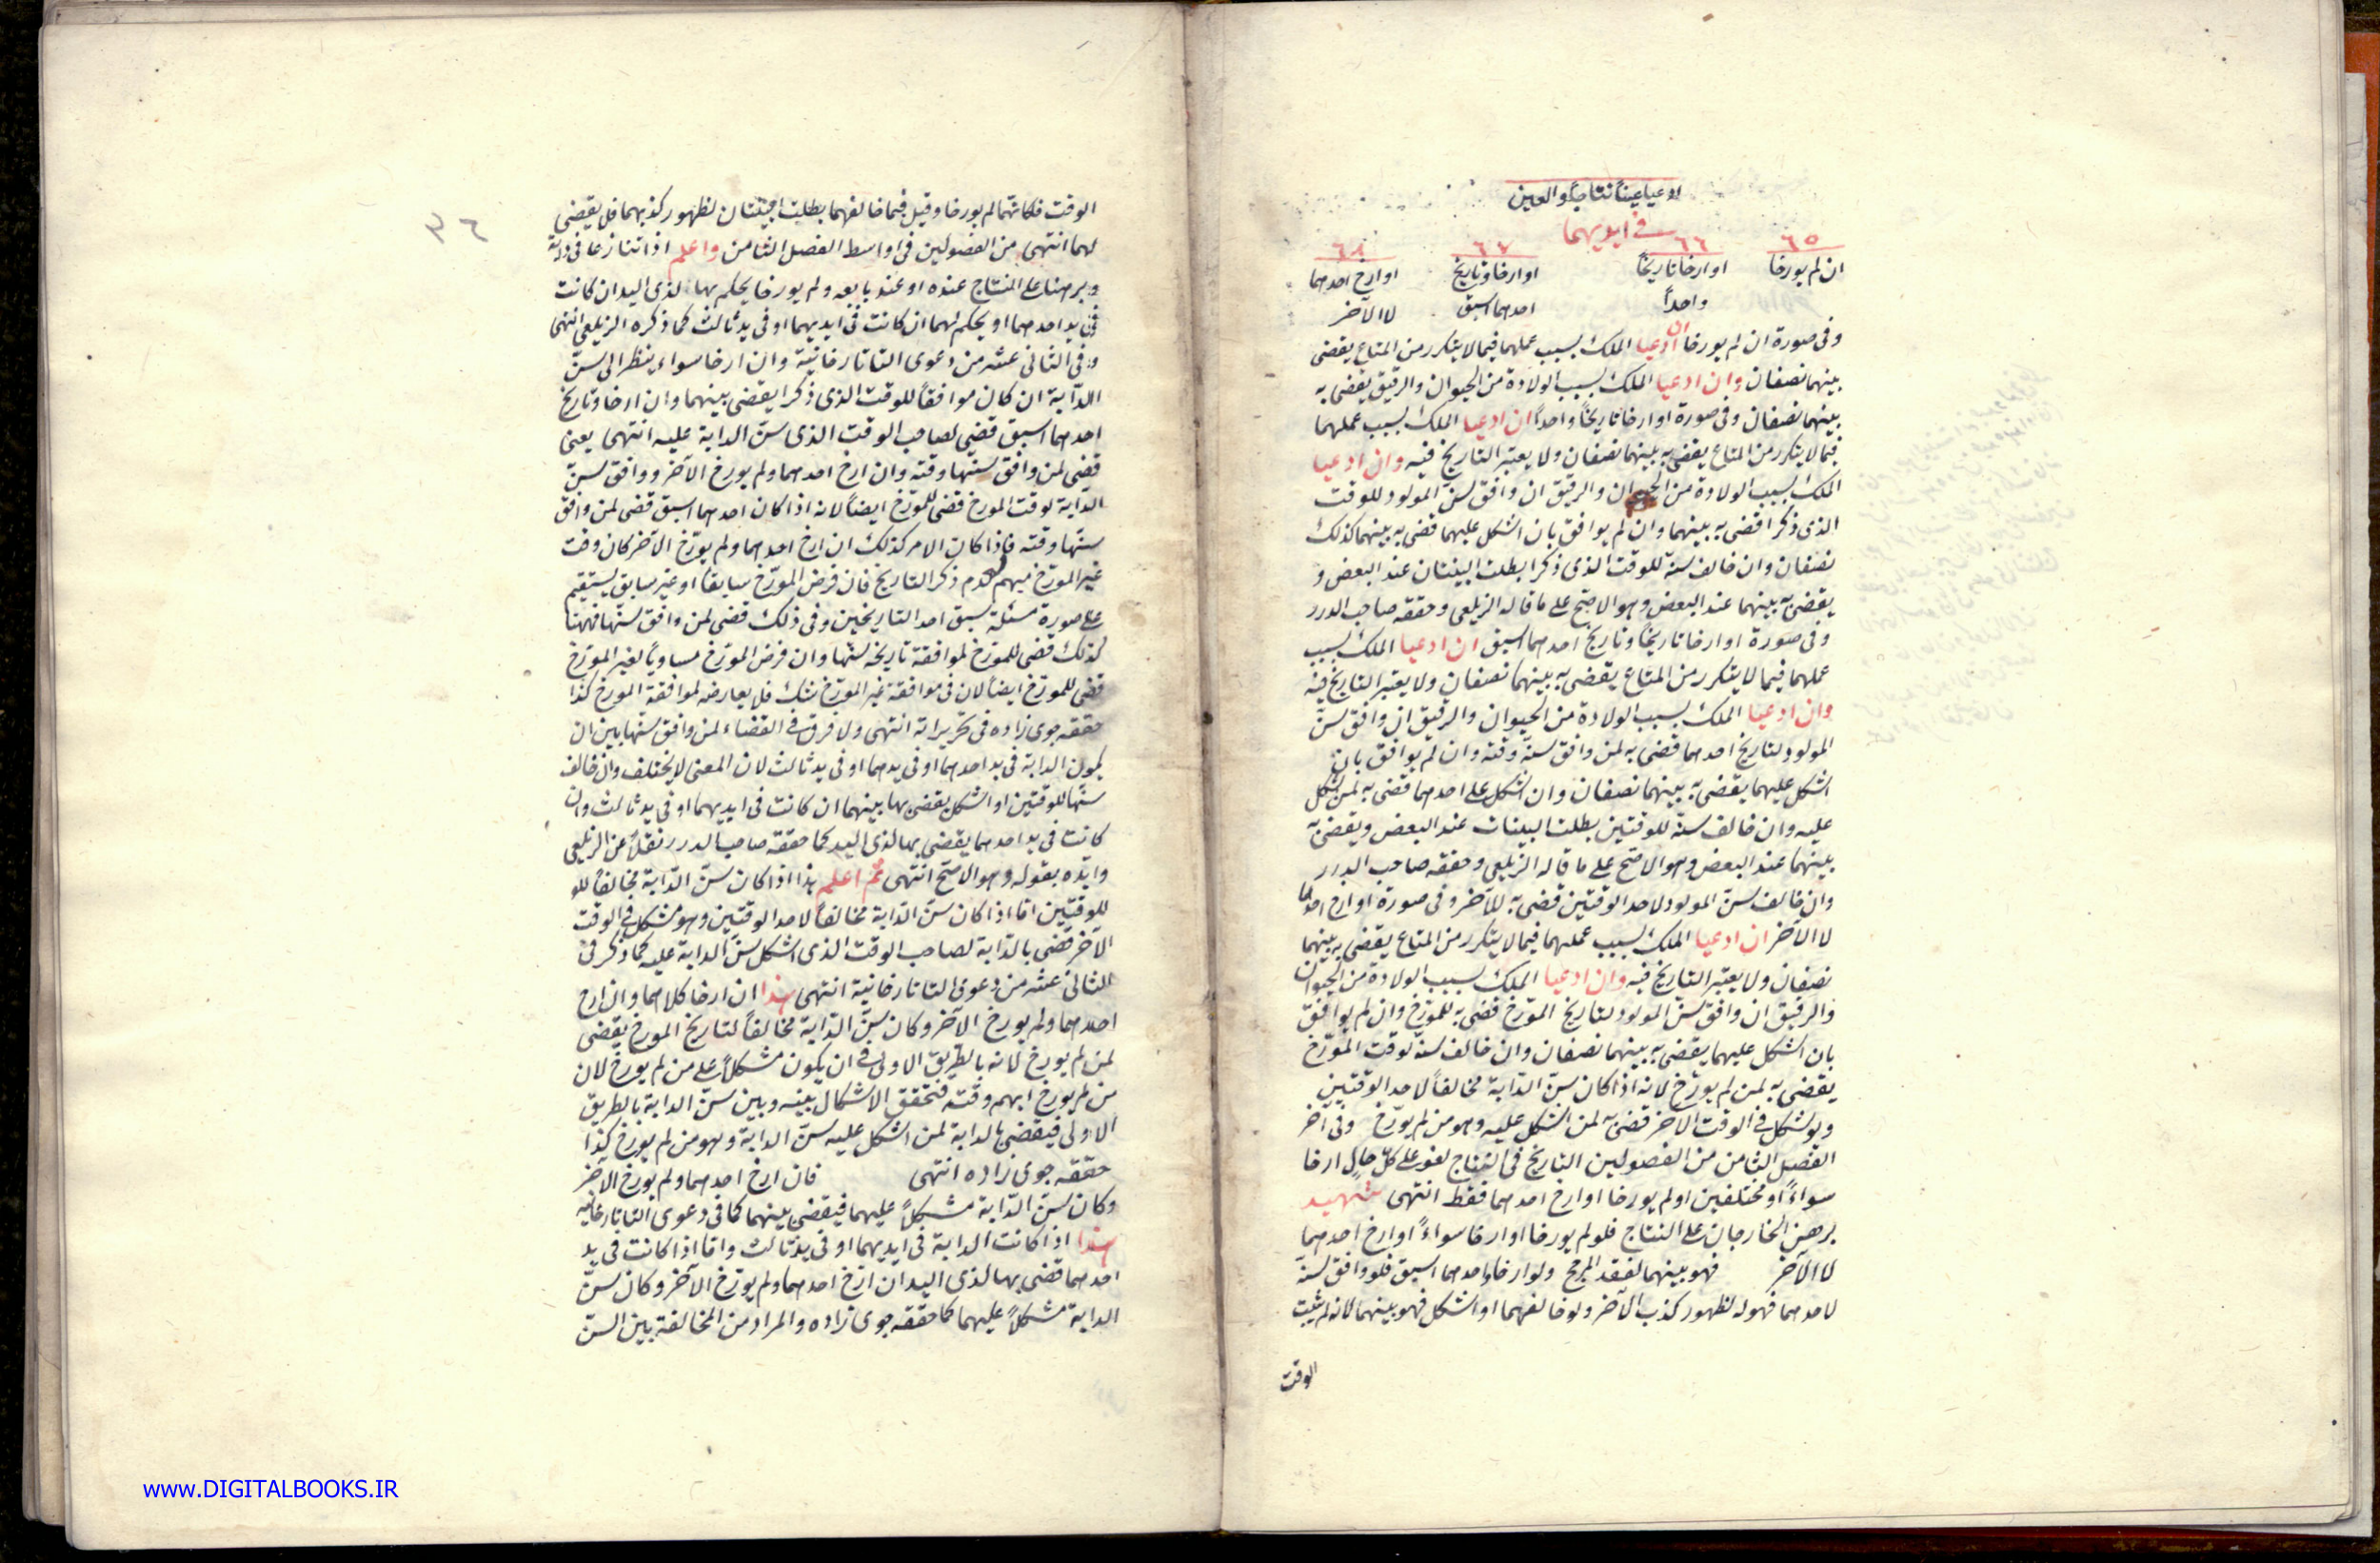 ادعيا عيناً نتاجاً والعين
في ايديهما
٦٥ ٦٦ ٦٧ ٦٨
ان لم يورخا او ارخا تاريخاً او ارخا وتاريخ او ارخ احدهما
واحداً احدهما اسبق لا الآخر
وفى صورة ان لم يورخا ان ادعيا الملك بسبب عملهما فيما لا يتكرر من المتاع يقضى
بينهما نصفان وان ادعيا الملك بسبب الولادة من الحيوان والرقيق يقضى به
بينهما نصفان وفى صورة او ارخا تاريخاً واحداً ان ادعيا الملك بسبب عملهما
فيما لا يتكرر من المتاع يقضى به بينهما نصفان ولا يعتبر التاريخ فيه وان ادعيا
الملك بسبب الولادة من الحيوان والرقيق ان وافق سن المولود للوقت
الذى ذكرا قضى به بينهما وان لم يوافق بان اشكل عليهما قضى به بينهما كذلك
نصفان وان خالف سنه للوقت الذى ذكرا بطلت البينتان عند البعض و
يقضى به بينهما عند البعض وهو الاصح على ما قاله الزيلعى وحققه صاحب الدرر
وفى صورة او ارخا تاريخاً وتاريخ احدهما اسبق ان ادعيا الملك بسبب
عملهما فيما لا يتكرر من المتاع يقضى به بينهما نصفان ولا يعتبر التاريخ فيه
وان ادعيا الملك بسبب الولادة من الحيوان والرقيق ان وافق سن
المولود لتاريخ احدهما قضى به لمن وافق سنه وقته وان لم يوافق بان
اشكل عليهما يقضى به بينهما نصفان وان اشكل على احدهما قضى به لمن اشكل
عليه وان خالف سنه للوقتين بطلت البينات عند البعض ويقضى به
بينهما عند البعض وهو الاصح على ما قاله الزيلعى وحققه صاحب الدرر
وان خالف سن المولود لاحد الوقتين قضى به للآخر وفى صورة او ارخ احدهما
لا الآخر ان ادعيا الملك بسبب عملهما فيما لا يتكرر من المتاع يقضى به بينهما
نصفان ولا يعتبر التاريخ فيه وان ادعيا الملك بسبب الولادة من الحيوان
والرقيق ان وافق سن المولود لتاريخ المورخ قضى به للمورخ وان لم يوافق
بان اشكل عليهما يقضى به بينهما نصفان وان خالف سنه لوقت المورخ
يقضى به لمن لم يورخ لانه اذا كان سن الدابة مخالفاً لاحد الوقتين
ويشكل في الوقت الآخر قضى به لمن اشكل عليه وهو من لم يورخ وفى آخر
الفصل الثامن من الفصولين التاريخ فى النتاج لغو على كل حال ارخا
سواءً او مختلفين او لم يورخا او ارخ احدهما فقط انتهى
برهن الخارجان على النتاج فلو لم يورخا او ارخا سواءً او ارخ احدهما
لا الآخر فهو بينهما لفقد المرجح ولو ارخا واحدهما اسبق فلو وافق سنه
لاحدهما فهو له لظهور كذب الآخر ولو خالفهما او اشكل فهو بينهما لانه لم يثبت
الوقت
٣٦
الوقت فكانهما لم يورخا وقيل فيما خالفهما بطلت البينتان لظهور كذبهما فلا يقضى
لهما انتهى من الفصولين فى اواسط الفصل الثامن واعلم اذا تنازعا فى دابة
وبرهنا على النتاج عنده او عند بايعه ولم يورخا يحكم بها لذى اليد ان كانت
فى يد احدهما او يحكم لهما ان كانت فى ايديهما او فى يد ثالث كما ذكره الزيلعى انتهى
وفى الثانى عشر من دعوى التاتارخانية وان ارخا سواء ينظر الى سن
الدابة ان كان موافقاً للوقت الذى ذكرا يقضى بينهما وان ارخا وتاريخ
احدهما اسبق قضى لصاحب الوقت الذى سن الدابة عليه انتهى يعنى
قضى لمن وافق سنها وقته وان ارخ احدهما ولم يورخ الآخر ووافق سن
الدابة لوقت المورخ قضى للمورخ ايضاً لانه اذا كان احدهما اسبق قضى لمن وافق
سنها وقته فاذا كان الامر كذلك ان ارخ احدهما ولم يورخ الآخر كان وقت
غير المورخ مبهم لعدم ذكر التاريخ فان فرض المورخ سابقاً او غير سابق يستقيم
على صورة مسئلة سبق احد التاريخين وفى ذلك قضى لمن وافق سنها فههنا
كذلك قضى للمورخ لموافقة تاريخه لسنها وان فرض المورخ مساوياً لغير المورخ
قضى للمورخ ايضاً لان فى موافقة غير المورخ شك فلا يعارضه لموافقة المورخ كذا
حققه جوى زاده فى تحريراته انتهى ولا فرق في القضاء لمن وافق سنها بين ان
يكون الدابة فى يد احدهما او فى يدهما او فى يد ثالث لان المعنى لا يختلف وان خالف
سنها للوقتين او اشكل يقضى بها بينهما ان كانت فى ايديهما او فى يد ثالث وان
كانت فى يد احدهما يقضى بها لذى اليد كما حققه صاحب الدرر نقلاً عن الزيلعى
وايده بقوله وهو الاصح انتهى ثم اعلم هذا اذا كان سن الدابة مخالفاً للو
للوقتين اما اذا كان سن الدابة مخالفاً لاحد الوقتين وهو مشكل فى الوقت
الآخر قضى بالدابة لصاحب الوقت الذى اشكل سن الدابة عليه كما ذكر فى
الثانى عشر من دعوى التاتارخانية انتهى هذا ان ارخا كلاهما وان ارخ
احدهما ولم يورخ الآخر وكان سن الدابة مخالفاً لتاريخ المورخ يقضى
لمن لم يورخ لانه بالطريق الاولى في ان يكون مشكلاً على من لم يورخ لان
من لم يورخ ابهم وقته فتحقق الاشكال بينه وبين سن الدابة بالطريق
الاولى فيقضى بالدابة لمن اشكل عليه سن الدابة وهو من لم يورخ كذا
حققه جوى زاده انتهى فان ارخ احدهما ولم يورخ الآخر
وكان سن الدابة مشكلاً عليهما فيقضى بينهما كما فى دعوى التاتارخانية
هذا اذا كانت الدابة فى ايديهما او فى يد ثالث واما اذا كانت فى يد
احدهما قضى بها لذى اليد ان ارخ احدهما ولم يورخ الآخر وكان سن
الدابة مشكلاً عليهما كما حققه جوى زاده والمراد من المخالفة بين السن
www.DIGITALBOOKS.IR